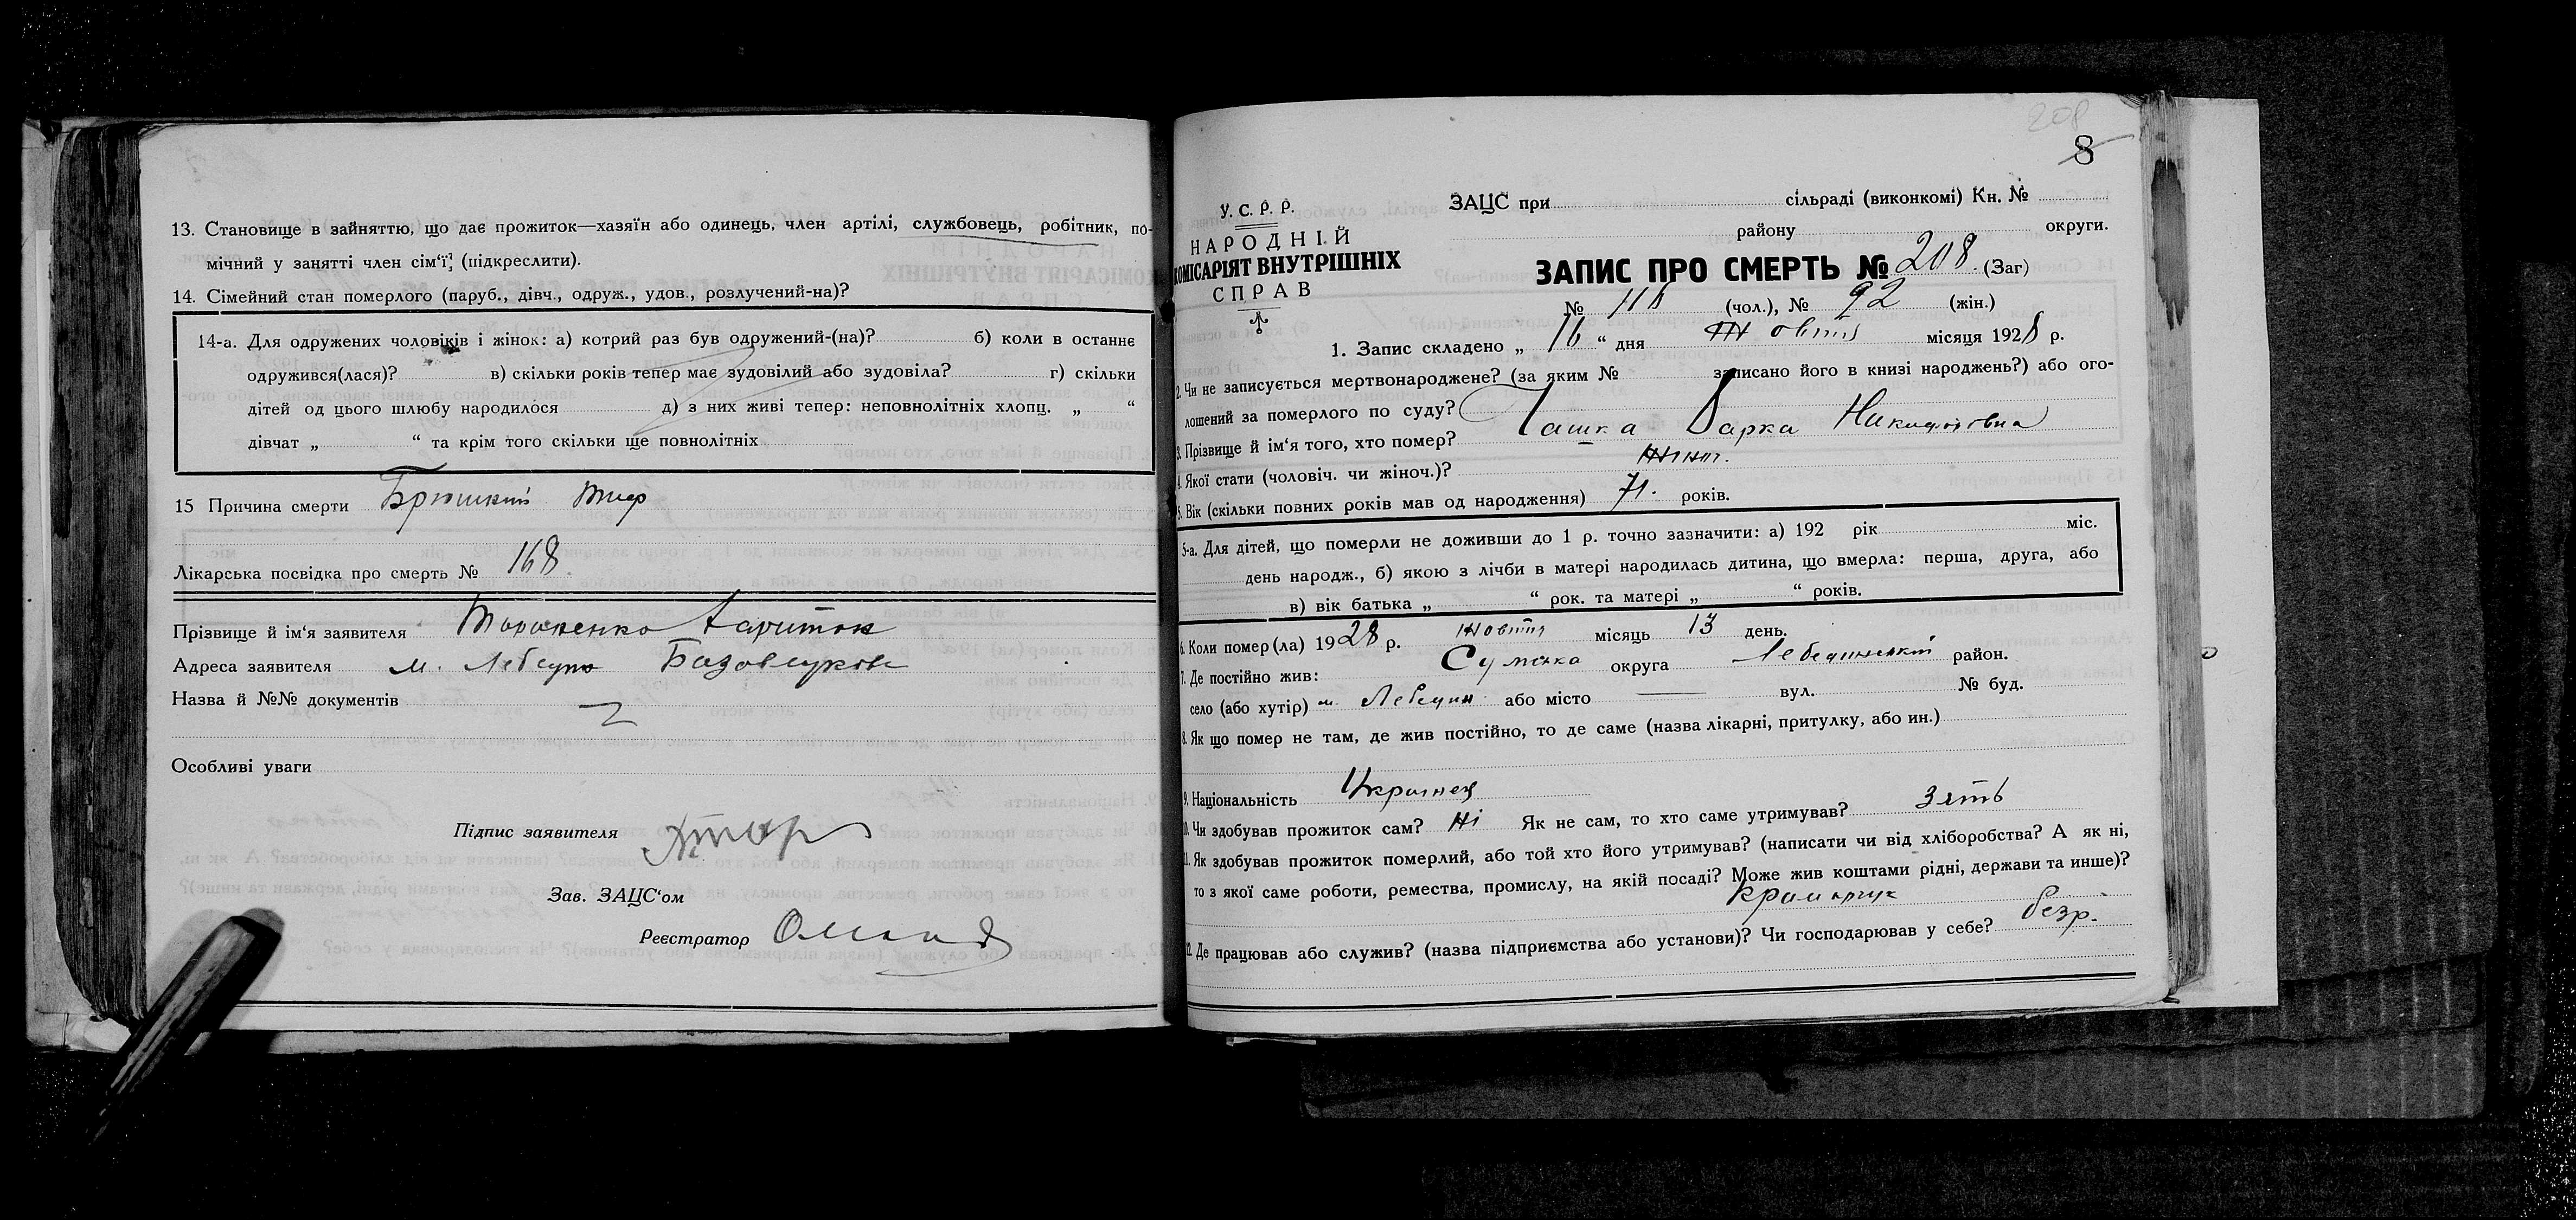 13. Становище в зайняттю, що дає прожиток—хазяїн або одинець, член артілі, службовець, робітник, по-
мічний у занятті член сім‘ї, (підкреслити).
14. Сімейний стан померлого (паруб., дівч., одруж., удов., розлучений-на)?
14-а. Для одружених чоловіків і жінок: а) котрий раз був одружений-(на)? б) коли в останнє
одружився(лася)? в) скільки років тепер має зудовілий або зудовіла? г) скільки
дітей од цього шлюбу народилося д) з них живі тепер: неповнолітніх хлопц. „ “
дівчат „ “ та крім того скільки ще повнолітніх
15 Причина смерти Брюшний тиф
Лікарська посвідка про смерть № 168
Прізвище й ім‘я заявителя Харитон
Адреса заявителя м. Лебедин
Назва й №№ документів
Особливі уваги
Підпис заявителя
Зав. ЗАЦС‘ом
Реєстратор
208
8
У. С. Р. Р.
НАРОДНІЙ
КОМІСАРІЯТ ВНУТРІШНІХ
СПРАВ
ЗАЦС при сільраді (виконкомі) Кн. №
району округи.
ЗАПИС ПРО СМЕРТЬ № 208. (Заг)
№ 116 (чол.), № 92 (жін.)
1. Запис складено „ 16 “ дня жовтня місяця 1928 р.
2. Чи не записується мертвонароджене? (за яким № записано його в книзі народжень?) або ого-
лошений за померлого по суду?
3. Прізвище й ім‘я того, хто помер? Чашка Дарка
4. Якої стати (чоловіч. чи жіноч.)? жін.
5. Вік (скільки повних років мав од народження) 71. років.
5-а. Для дітей, що померли не доживши до 1 р. точно зазначити: а) 192 рік міс.
день народж., б) якою з лічби в матері народилась дитина, що вмерла: перша, друга, або
в) вік батька „ “ рок. та матері „ “ років.
6. Коли помер(ла) 1928 р. жовтня місяць 13 день.
7. Де постійно жив: Сумська округа Лебединський район.
село (або хутір) м. Лебедин або місто — вул. № буд.
8. Як що помер не там, де жив постійно, то де саме (назва лікарні, притулку, або ин.)
9. Національність Українец
10. Чи здобував прожиток сам? Ні Як не сам, то хто саме утримував? зять
11. Як здобував прожиток померлий, або той хто його утримував? (написати чи від хліборобства? А як ні,
то з якої саме роботи, ремества, промислу, на якій посаді? Може жив коштами рідні, держави та инше)?
12. Де працював або служив? (назва підприємства або установи)? Чи господарював у себе? безр.